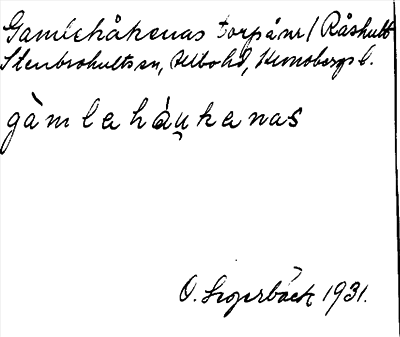 Gamlehåkenas torpänr/ Råshult
Stenbrohults sn, Allbo hd, Kronobergs l.
gàmleháu̯kenas
O. Segerbäck 1931.